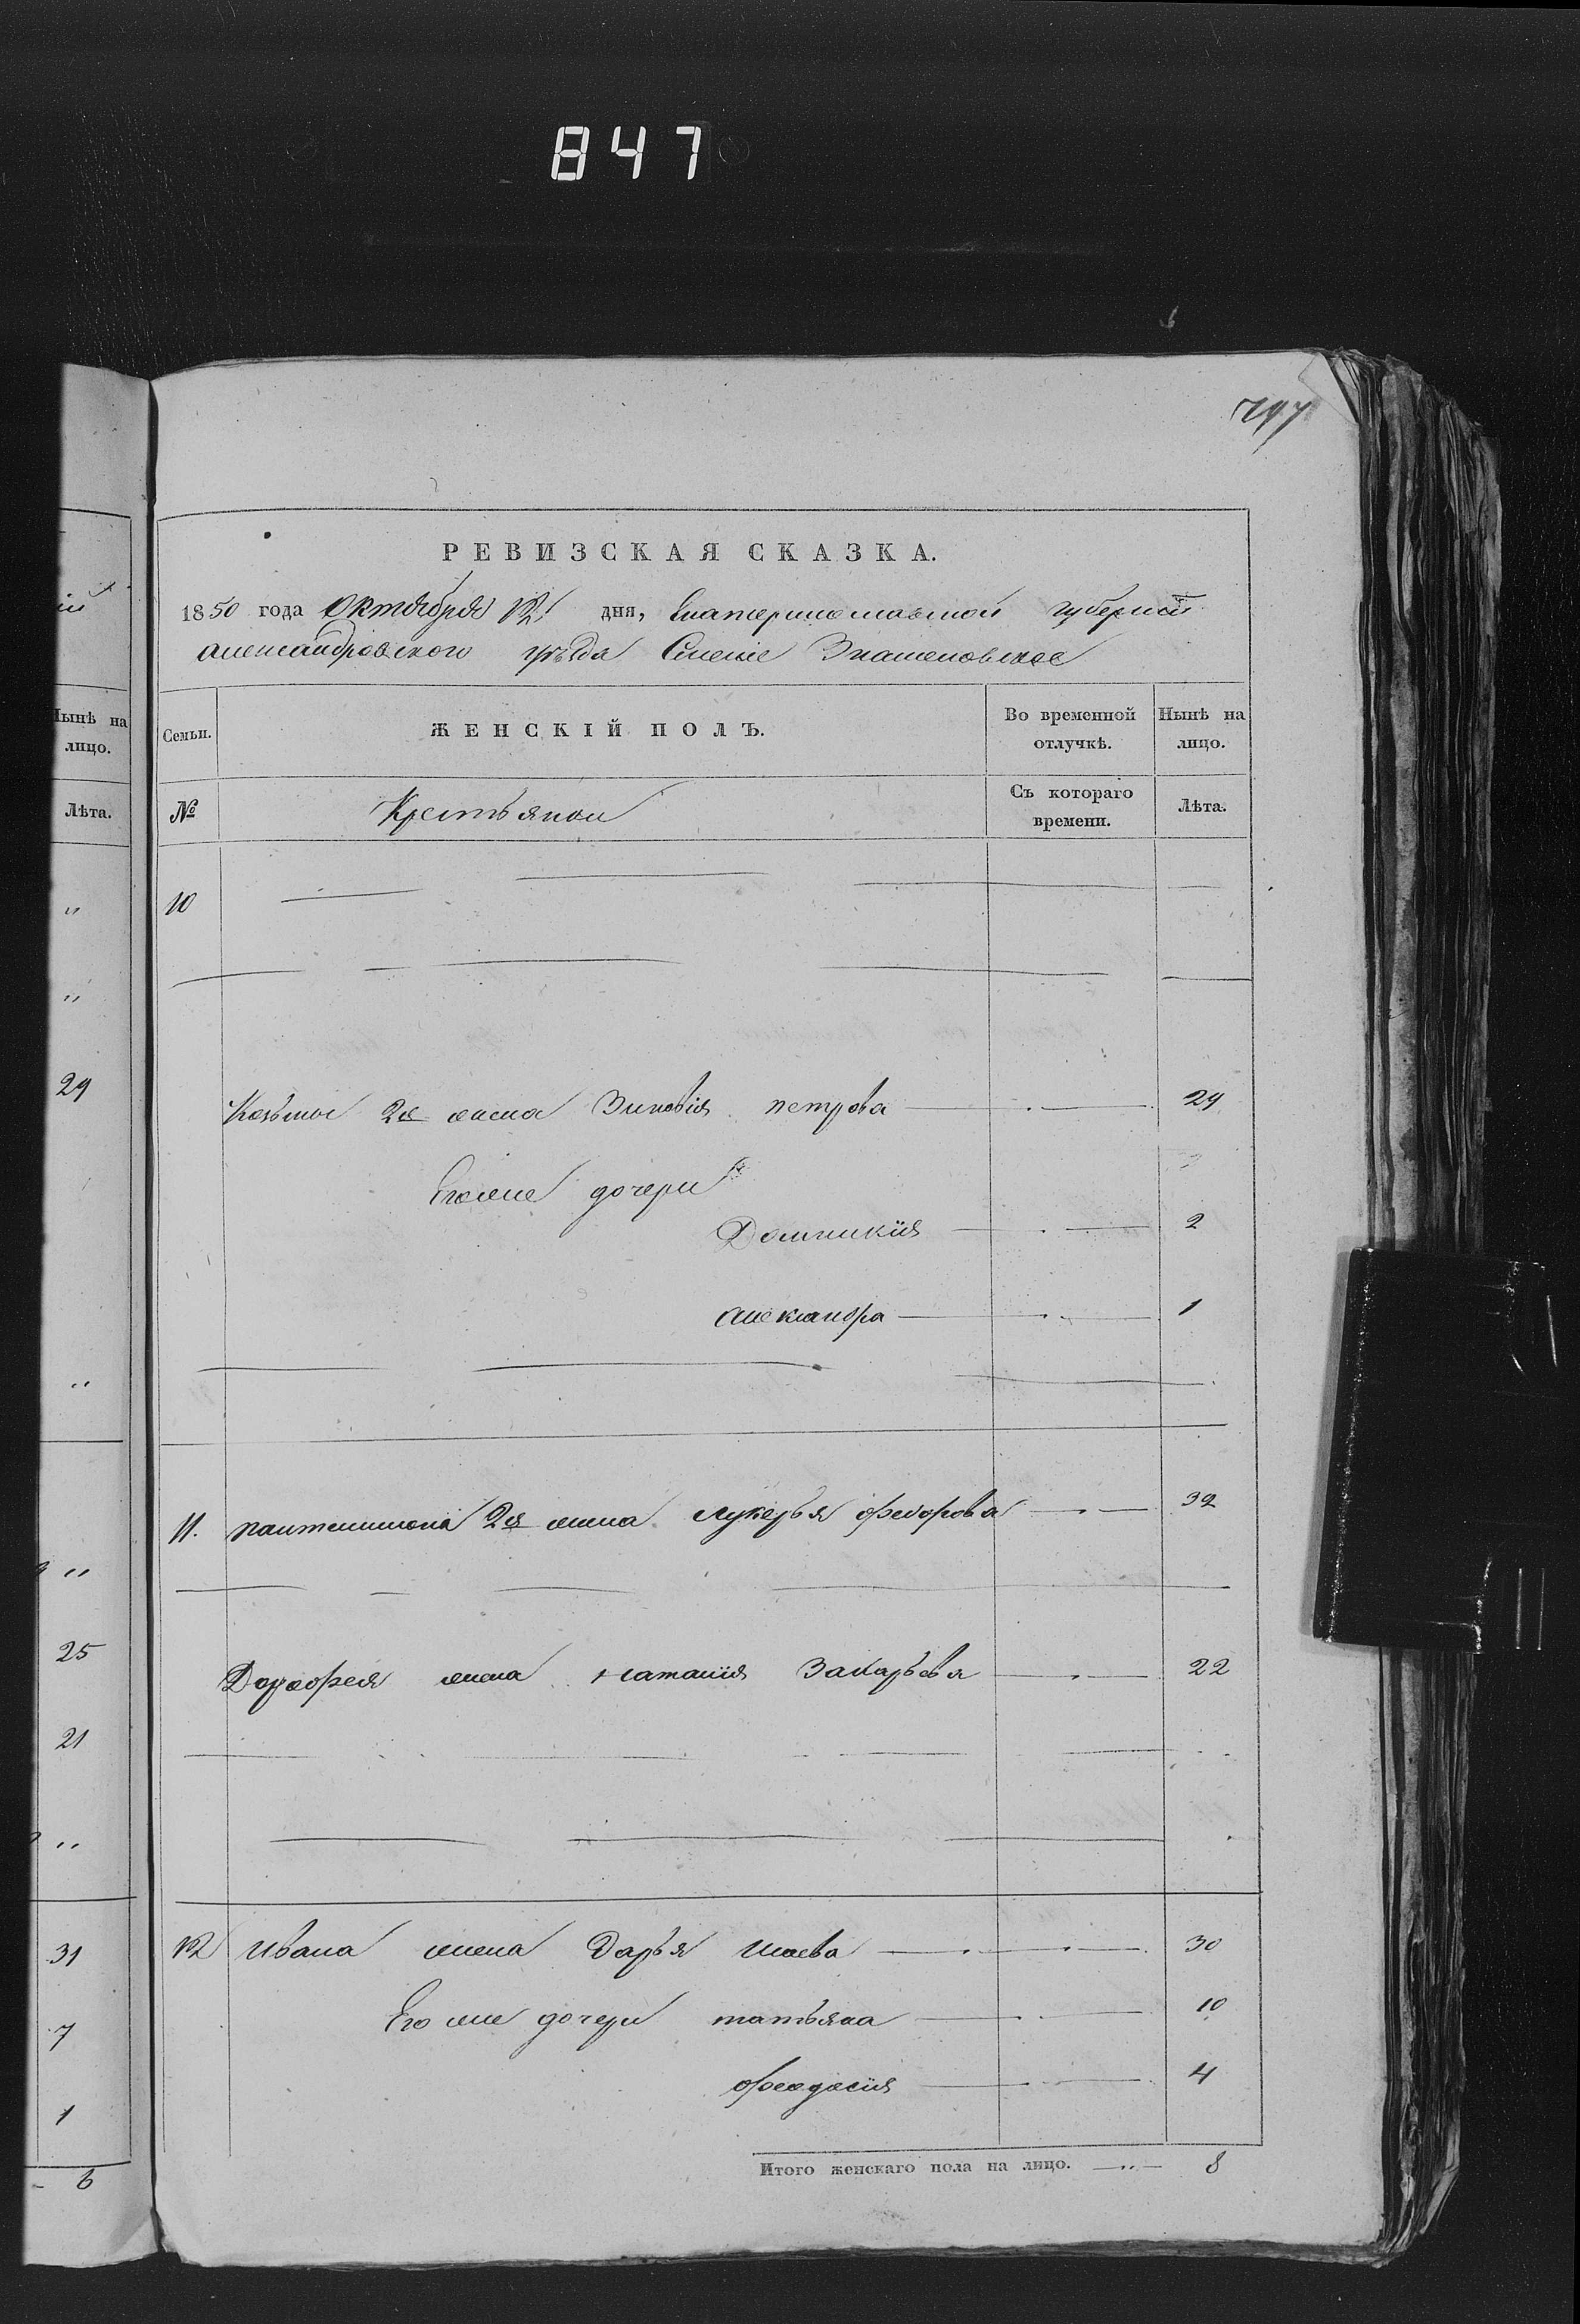 847
797
РЕВИЗСКАЯ СКАЗКА.
1850 года Октября 12 дня, Екатеринославской губернии
александровского уезда Селенiе Знаменовское
Нынѣ на лицо.
Лѣта.
Семьи.
ЖЕНСКIЙ ПОЛЪ.
Во временной отлучкѣ.
Нынѣ на лицо.
№
Крестьянои
Съ котораго времени.
Лѣта.
10
29
Козьмы 2я жена Зиновiя петрова 29
Его же дочери
Домникiя 2
александра 1
11. пантелимона 2я жена лукерья федорова 32
25
Дорофея жена наталiя Захарьева 22
21
31
12 ивана жена Дарья исаева 30
7
Его же дочери татьяна 10
1
феодосiя 4
6
Итого женскаго пола на лицо. 8